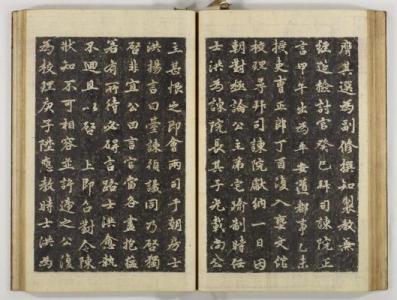 應其選為副修撰知製教兼
經筵檢討官癸巳拜司諫院正
言甲午出為平安道都事乙未
授吏曹正郎丁酉復入文館
校理尋拜司諫院獻納一日因
朝對極論公主第宅踰制時任
士洪為諫院長其子光載尚公
主甚恨之即會兩司于朝房士
洪揚言曰臺諫須議同乃啓獨
啓非宜公曰言官當各盡抱蘊
若有所待必碍言路士洪愈執
不迴且以啓上即召對令陳
狀知不可相容並許遞之公
為校理庚子陞應教時士洪為